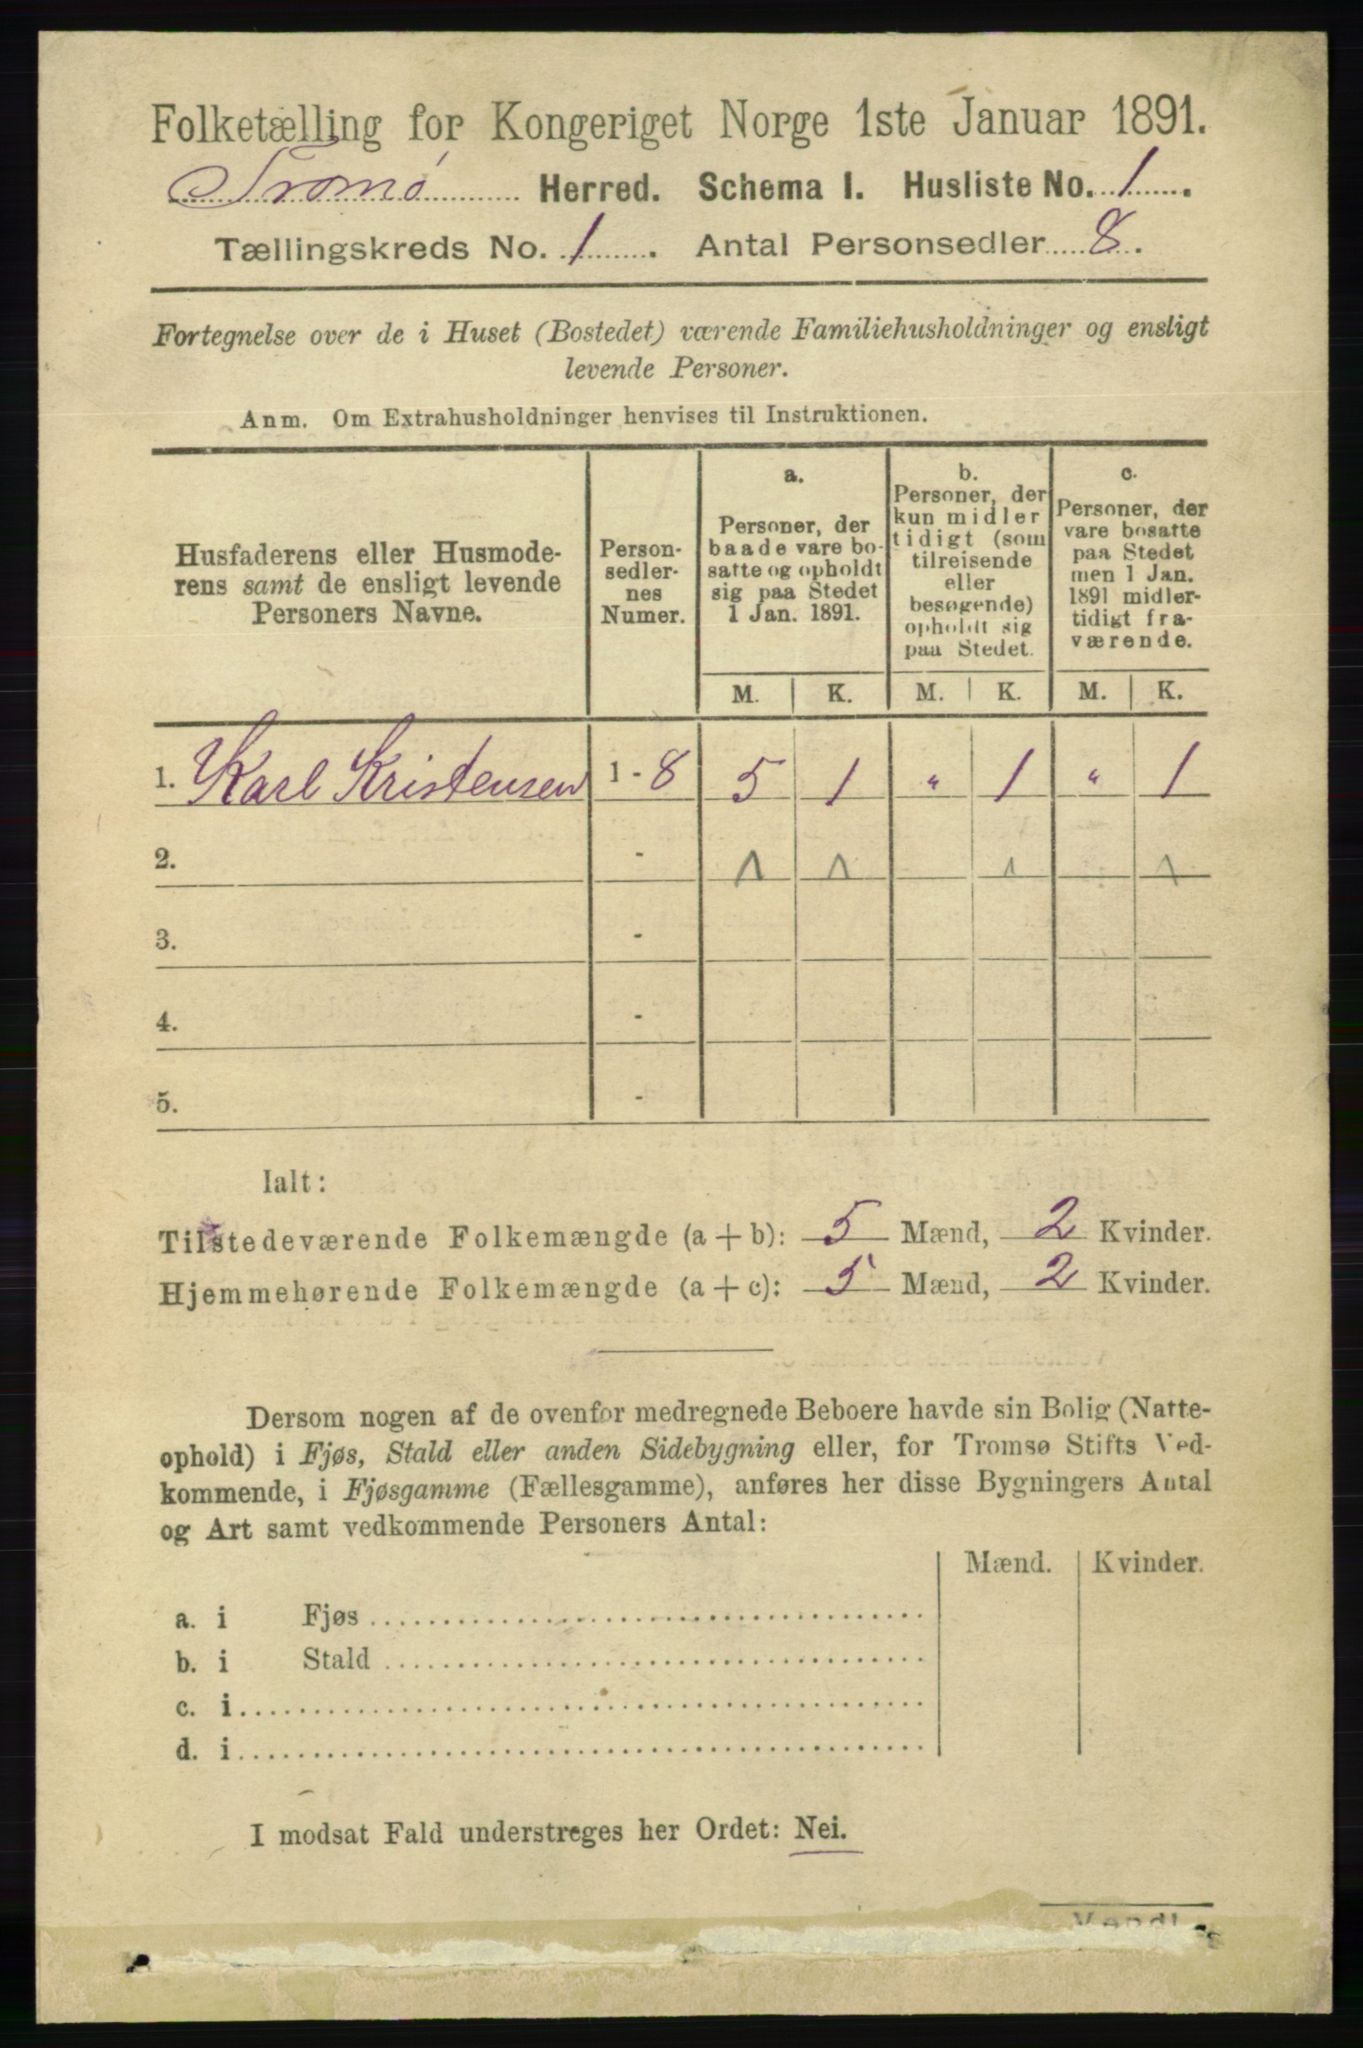 Folketælling for Kongeriget Norge 1ste Januar 1891.
Tromø Herred. Schema I. Husliste No. 1.
Tællingskreds No. 1. Antal Personsedler 8.
Fortegnelse over de i Huset (Bostedet) værende Familiehusholdninger og ensligt
levende Personer.
Anm. Om Extrahusholdninger henvises til Instruktionen.
Husfaderens eller Husmode-
rens samt de ensligt levende
Personers Navne.
Person-
sedler-
nes
Numer.
a.
Personer, der
baade vare bo-
satte og opholdt
sig paa Stedet
1 Jan. 1891.
b.
Personer, der
kun midler
tidigt (som
tilreisende
eller
besøgende)
opholdt sig
paa Stedet.
c.
Personer, der
vare bosatte
paa Stedet
men 1 Jan.
1891 midler-
tidigt fra-
værende.
M. K. M. K. M. K.
1. Karl Kristensen 1 - 8 5 1 " 1 " 1
2. -
3. -
4. -
5. -
Ialt:
Tilstedeværende Folkemængde (a + b): 5 Mænd, 2 Kvinder.
Hjemmehørende Folkemængde (a + c): 5 Mænd, 2 Kvinder.
Dersom nogen af de ovenfor medregnede Beboere havde sin Bolig (Natte-
ophold) i Fjøs, Stald eller anden Sidebygning eller, for Tromsø Stifts Ved-
kommende, i Fjøsgamme (Fællesgamme), anføres her disse Bygningers Antal
og Art samt vedkommende Personers Antal:
Mænd. Kvinder.
a. i Fjøs
b. i Stald
c. i
d. i
I modsat Fald understreges her Ordet: Nei.